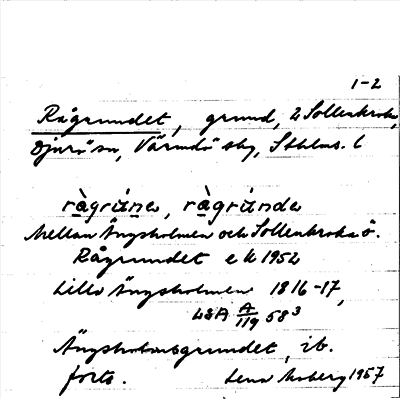 1-2
Rågrundet, grund, 2 Sollenkroka,
Djurö sn, Värmdö sky, Sthlms. l
ràgrúnə, ràgrúndə
Mellan Ängsholmen och Sollenkroka ö.
Rågrundet ek 1952
Lilla Ängsholmen 1816-17,
LSA A/119 58³
Ängsholmsgrundet, ib.
forts. Lena Moberg 1957